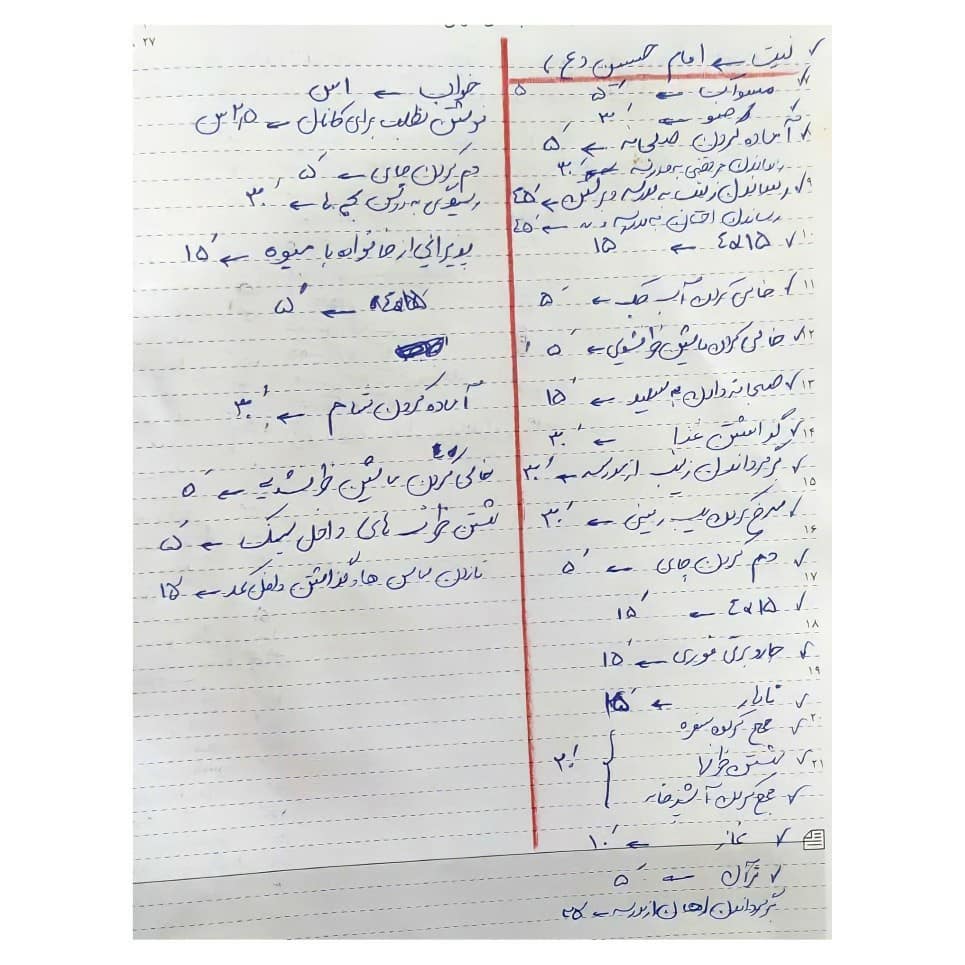 نیت ← امام حسین (ع)
مسواک ← ۵َ
وضو ← ۳۰َ
آماده کردن صبحانه ← ۵َ
رساندن مرتضی به مدرسه ← ۳۰َ
۹ رساندن زینب به مدرسه و برگشتن ← ۴۵َ
رساندن به مدرسه ← ۴۵َ
۱۰ ← ۱۵
۱۱ خالی کردن آب ← ۵َ
۱۲ خالی کردن ماشین ظرفشویی ← ۵َ
۱۳ صبحانه دادن به ← ۱۵َ
۱۴ گذاشتن غذا ← ۳۰َ
برگرداندن زینب از مدرسه ← ۳۰َ
۱۵
سرخ کردن سیب زمینی ← ۳۰َ
۱۶
دم کردن چای ← ۵َ
۱۷
← ۱۵َ
۱۸
جارو برقی فوری ← ۱۵َ
۱۹
ناهار ← ۴۵َ
۲۰ جمع کردن سفره
۲۱ شستن ظرفها ۳۰َ
جمع کردن آشپزخانه
نماز ← ۱۰َ
قرآن ← ۵َ
برگرداندن از مدرسه ←
۲۷
خواب ← ۱س
نوشتن مطلب برای کانال ← ۲٫۵س
دم کردن چای ← ۵َ
رسیدگی به درس بچه ها ← ۳۰َ
پذیرایی از خانواده با میوه ← ۱۵َ
← ۵َ
آماده کردن شام ← ۳۰َ
خالی کردن ماشین ظرفشویی ← ۵َ
شستن ظرف های داخل سینک ← ۵َ
تا زدن لباس ها و گذاشتن داخل کمد ← ۱۵َ